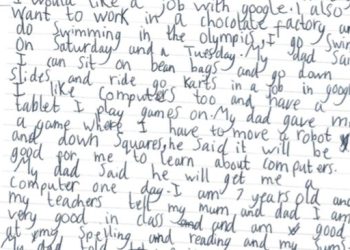 I would like a job with google. I also
want to work in a chocolate factory and
do swimming in the olympics, I go swim
on Saturday and a Tuesday. My dad said
I can sit on bean bags and go down
slides and ride go karts in a job in google
I like computers too and have a
tablet I play games on. My dad gave me
a game where I have to move a robot
and down squares, he said it will be
good for me to learn about computers.
My dad said he will get me a
computer one day. I am 7 years old and
my teachers tell my mum and dad I am
very good in class and am good
at my Spelling and reading and my
My dad told